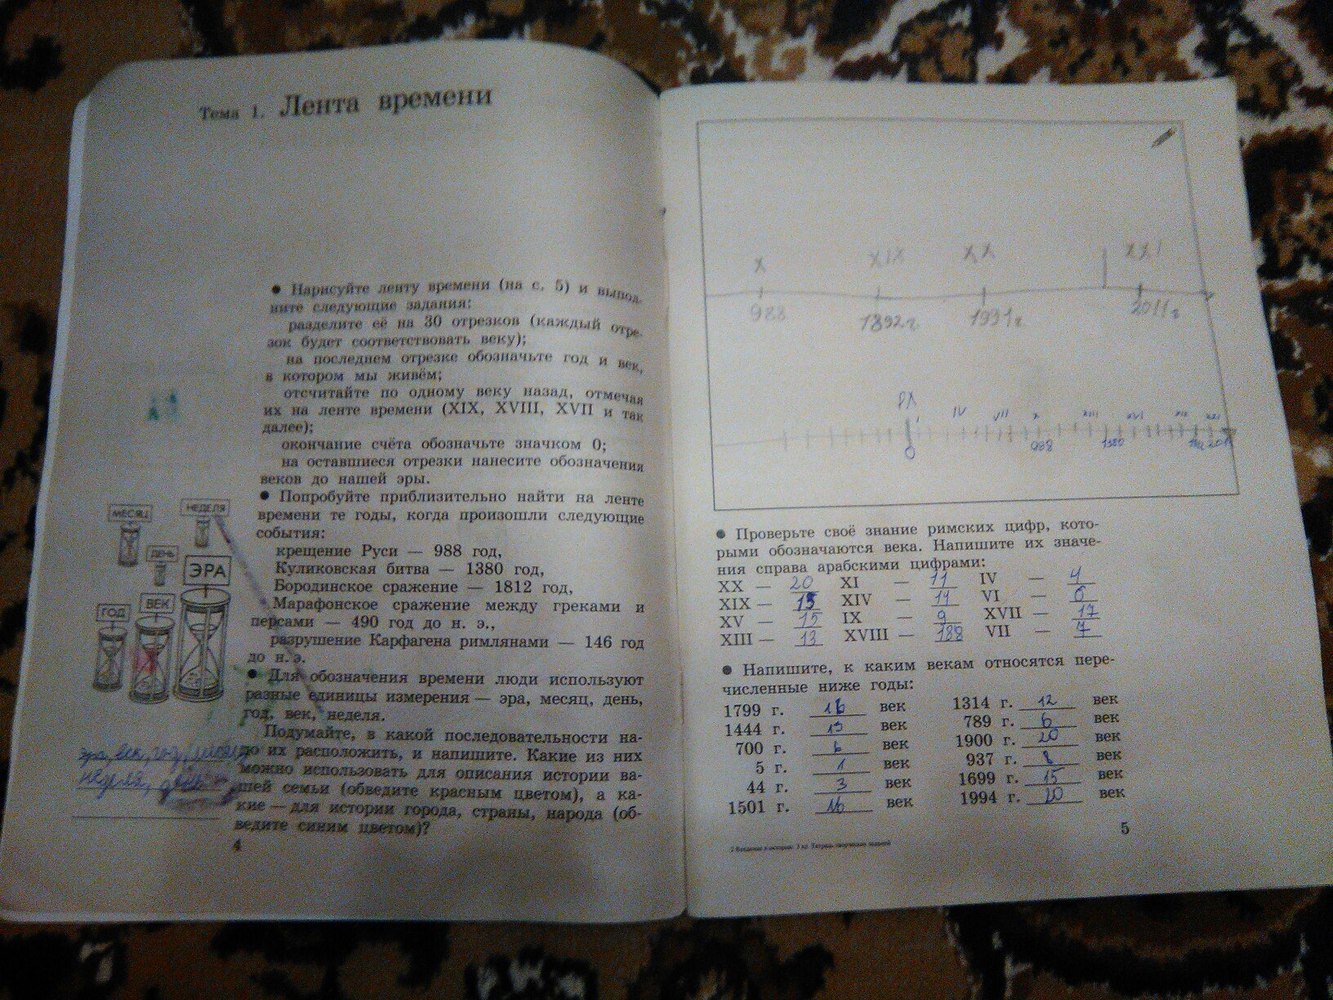 Тема 1. Лента времени
• Нарисуйте ленту времени (на с. 5) и выпол-
ните следующие задания:
разделите её на 30 отрезков (каждый отре-
зок будет соответствовать веку);
на последнем отрезке обозначьте год и век,
в котором мы живём;
отсчитайте по одному веку назад, отмечая
их на ленте времени (XIX, XVIII, XVII и так
далее);
окончание счёта обозначьте значком 0;
на оставшиеся отрезки нанесите обозначения
веков до нашей эры.
• Попробуйте приблизительно найти на ленте
времени те годы, когда произошли следующие
события:
крещение Руси — 988 год,
Куликовская битва — 1380 год,
Бородинское сражение — 1812 год,
Марафонское сражение между греками и
персами — 490 год до н. э.,
разрушение Карфагена римлянами — 146 год
до н. э.
• Для обозначения времени люди используют
разные единицы измерения — эра, месяц, день,
год, век, неделя.
Подумайте, в какой последовательности на-
до их расположить, и напишите. Какие из них
можно использовать для описания истории ва-
шей семьи (обведите красным цветом), а ка-
кие — для истории города, страны, народа (об-
ведите синим цветом)?
МЕСЯЦ НЕДЕЛЯ
ДЕНЬ
ЭРА
ГОД ВЕК
эра, век, год, месяц
неделя, день
4
X XIX XX XXI
988 1892г 1991г 2011г
РХ
IV VII X XIII XVI XIX XXI
0 988 1380
• Проверьте своё знание римских цифр, кото-
рыми обозначаются века. Напишите их значе-
ния справа арабскими цифрами:
XX — 20 XI — 11 IV — 4
XIX — 19 XIV — 14 VI — 6
XV — 15 IX — 9 XVII — 17
XIII — 13 XVIII — 188 VII — 7
• Напишите, к каким векам относятся пере-
численные ниже годы:
1799 г. 16 век 1314 г. 12 век
1444 г. 13 век 789 г. 6 век
700 г. 6 век 1900 г. 20 век
5 г. 1 век 937 г. 8 век
44 г. 3 век 1699 г. 15 век
1501 г. 16 век 1994 г. 20 век
5
2 Введение в историю. 3 кл. Тетрадь творческих заданий